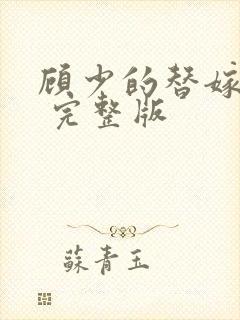 顾少的替嫁
完整版
蘇青玉